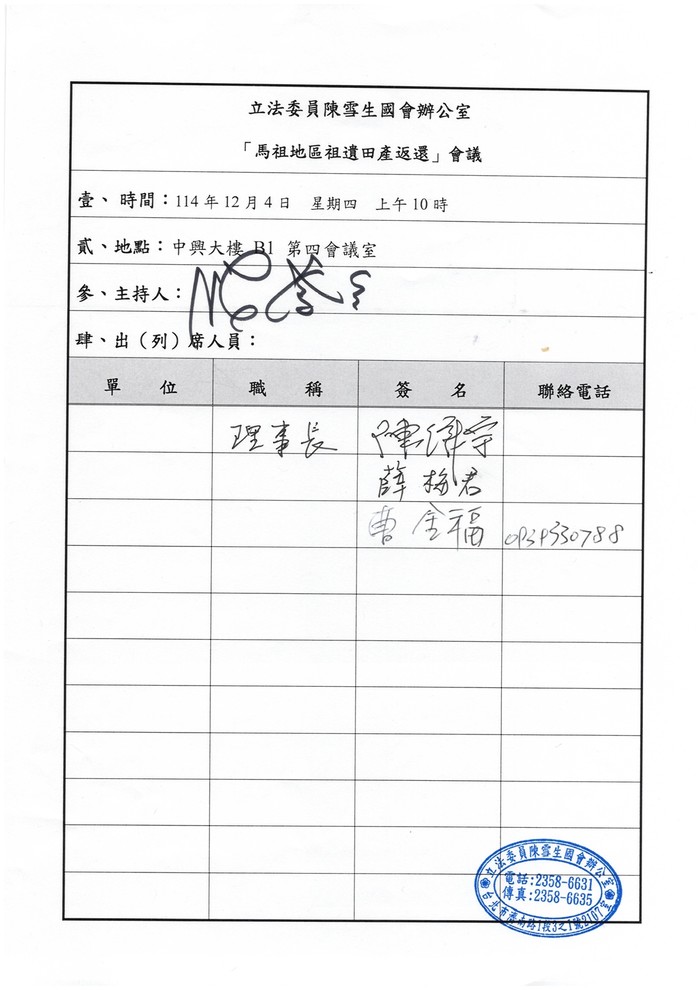 立法委員陳雪生國會辦公室
「馬祖地區祖遺田產返還」會議
壹、時間：114年12月4日 星期四 上午10時
貳、地點：中興大樓 B1 第四會議室
參、主持人：
肆、出（列）席人員：
單 位 職 稱 簽 名 聯絡電話
理事長 陳
薛梅君
曹金福
立法委員陳雪生國會辦公室
電話:2358-6631
傳真:2358-6635
台北市濟南路1段3之1號2107室